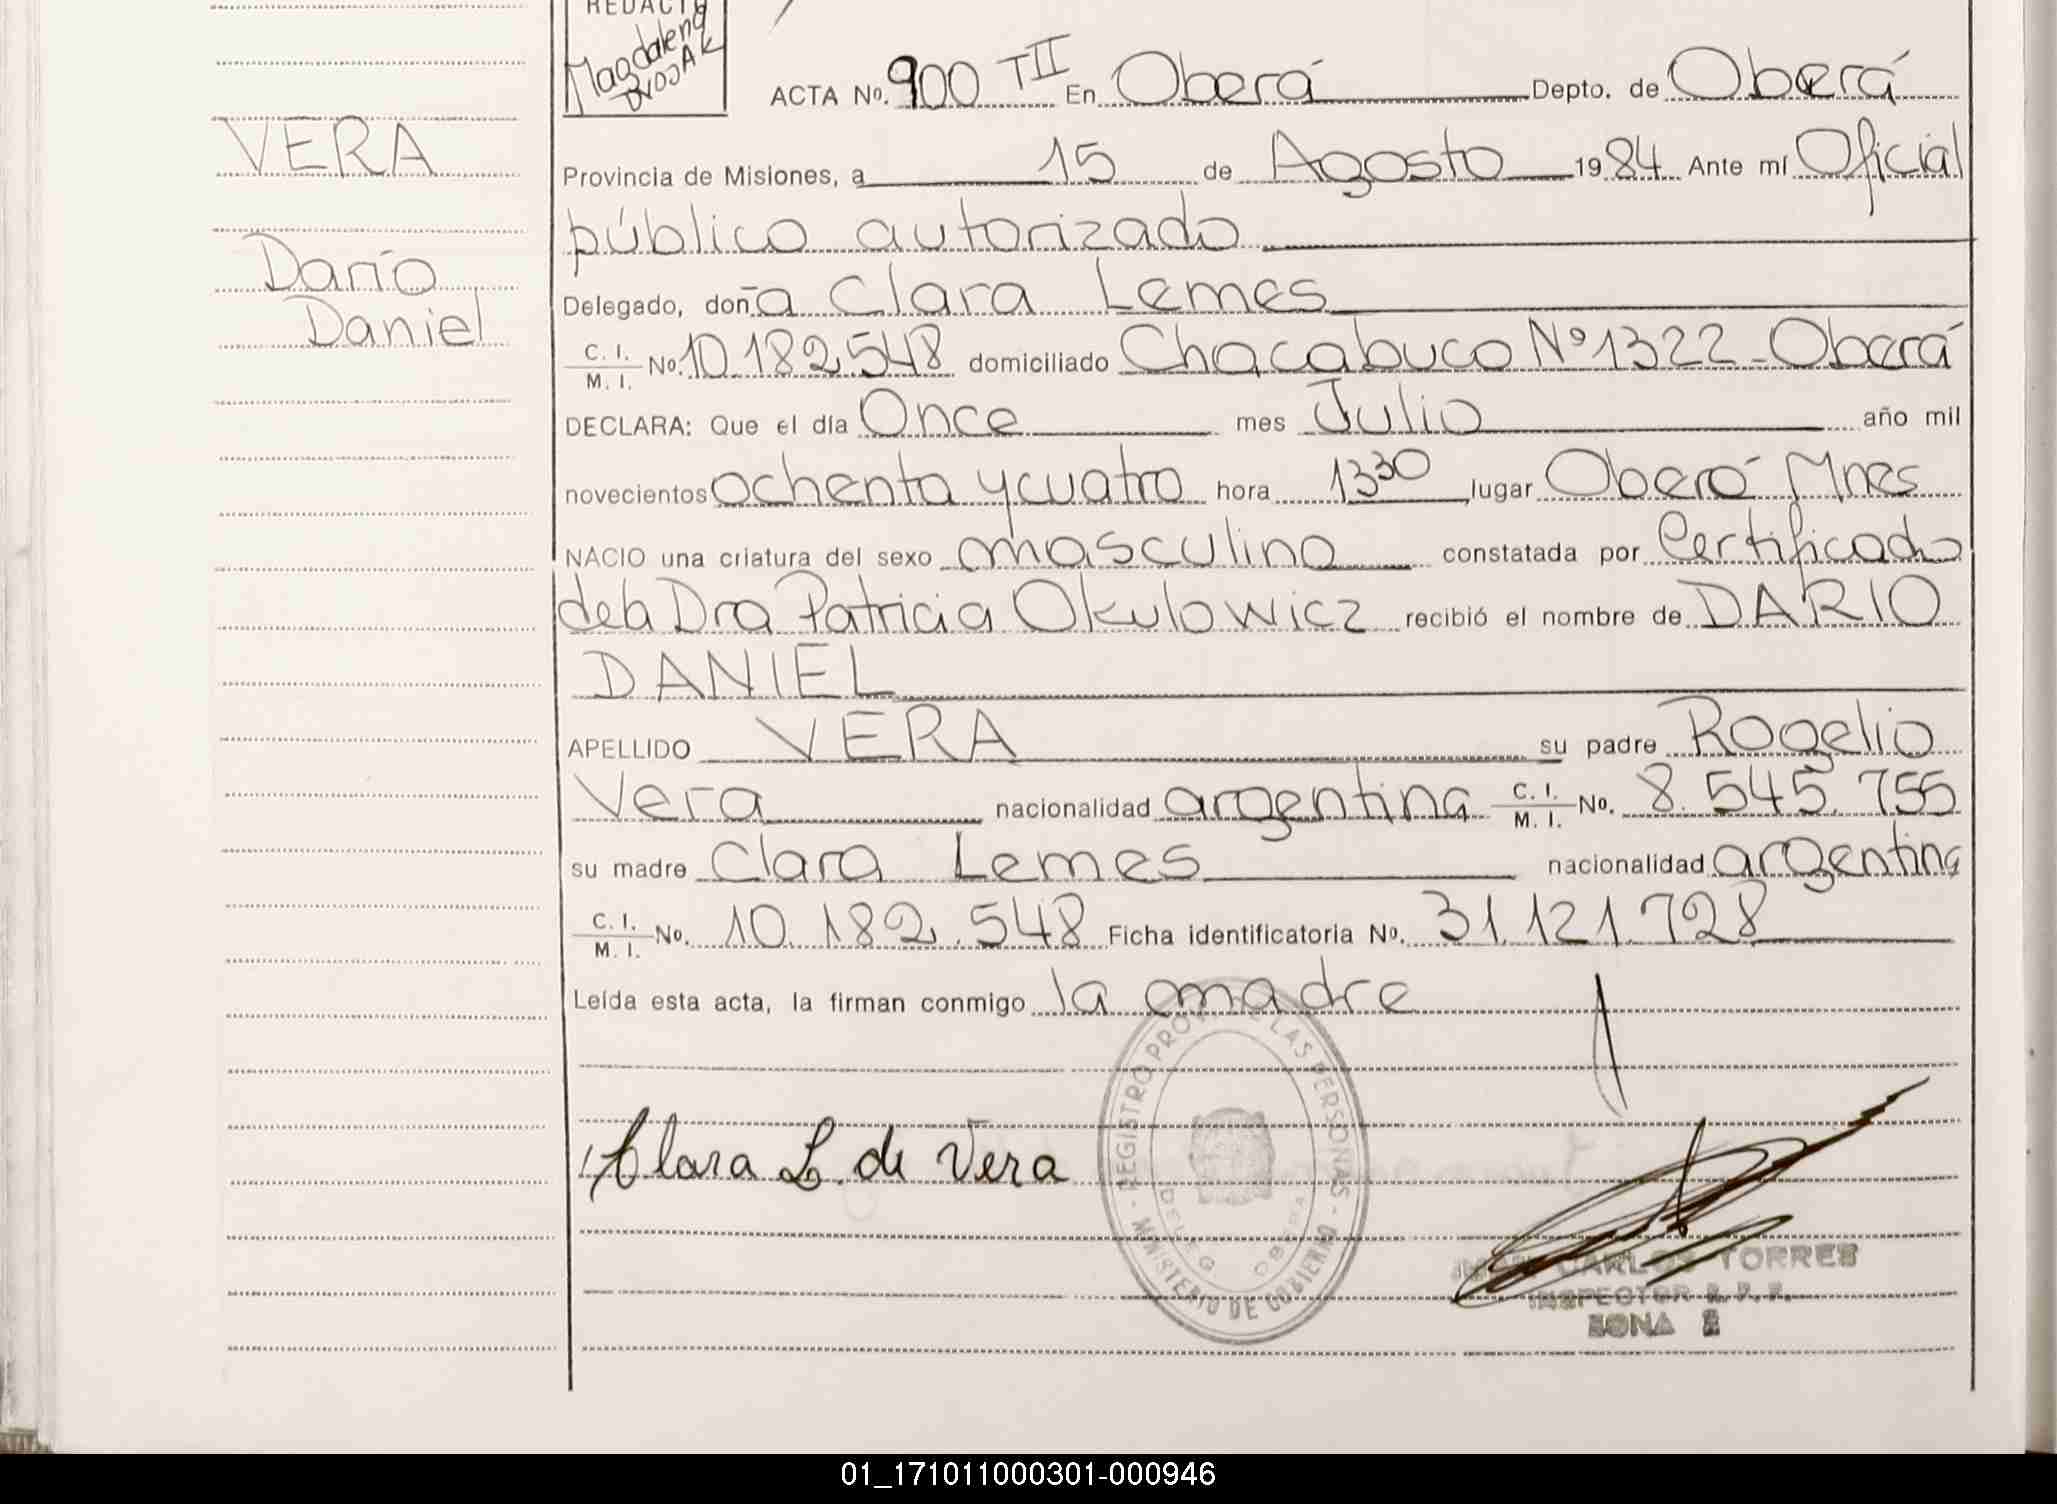 REDACTO
Magdalena
ACTA Nº. 900 TII En Oberá Depto. de Oberá
VERA
Provincia de Misiones, a 15 de Agosto 1984 Ante mí Oficial
público autorizado
Darío
Daniel
Delegado, doña Clara Lemes
C. I.
M. I. No. 10.182.548 domiciliado Chacabuco Nº 1322 - Oberá
DECLARA: Que el día Once mes Julio año mil
novecientos ochenta y cuatro hora 13 30 lugar Oberá Mnes
NACIO una criatura del sexo masculino constatada por Certificado
de la Dra Patricia Okulowicz recibió el nombre de DARIO
DANIEL
APELLIDO VERA su padre Rogelio
Vera nacionalidad argentina C. I. M. I. No. 8.545.755
su madre Clara Lemes nacionalidad argentina
C. I. M. I. No. 10.182.548 Ficha identificatoria No. 31.121.728
Leída esta acta, la firman conmigo la madre
Clara L. de Vera
REGISTRO PROV. DE LAS PERSONAS - MINISTERIO DE GOBIERNO -
DELEG OBERA
JUAN CARLOS TORRES
INSPECTOR R. P. P.
ZONA 2
01_171011000301-000946